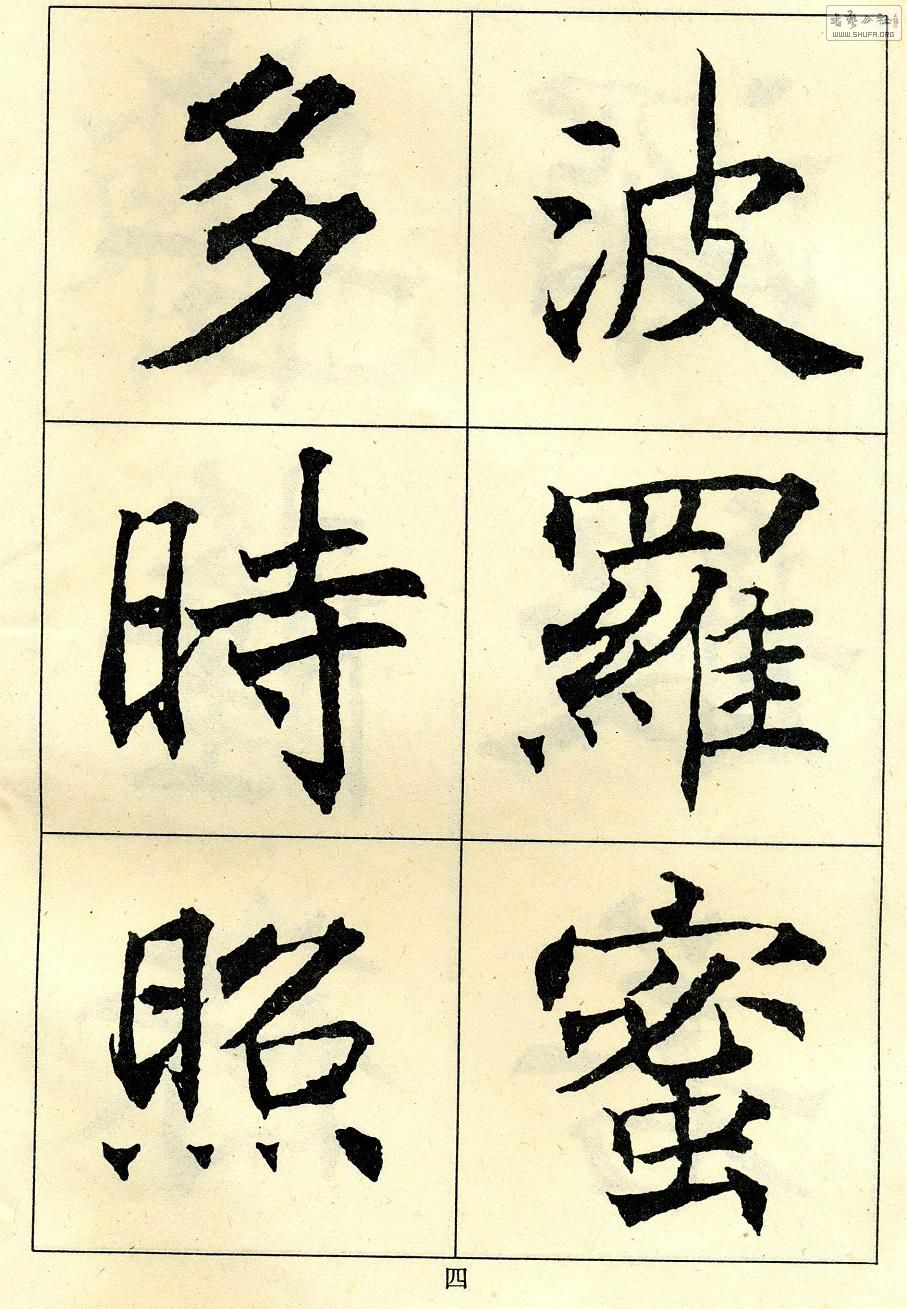 波羅蜜
多時照
四
WWW.SHUFA.ORG